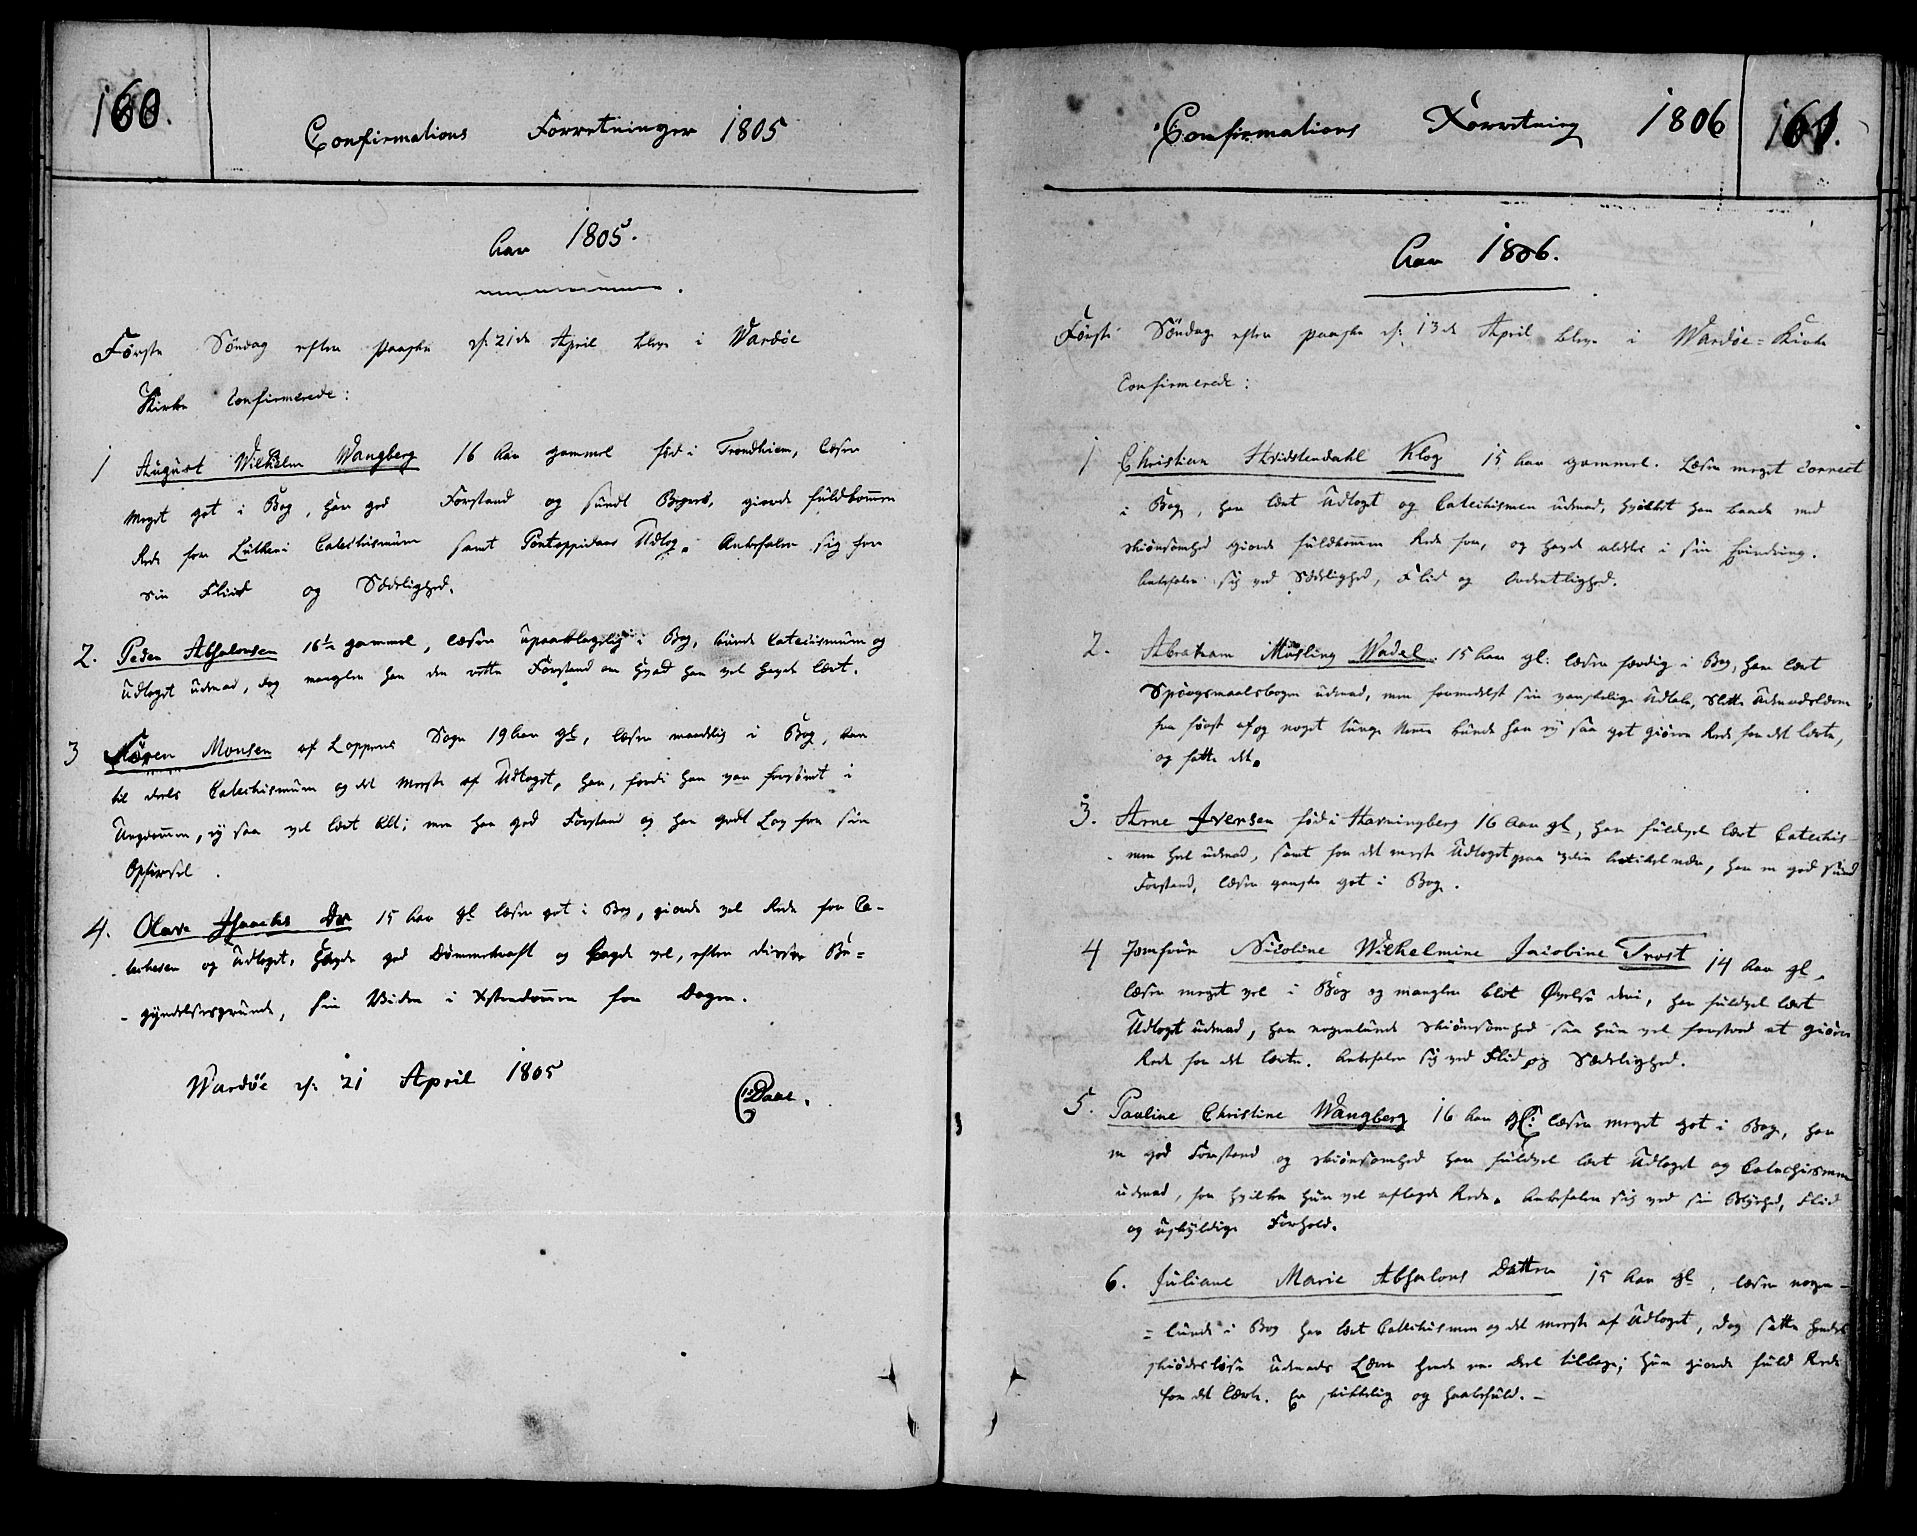 160.
Confirmations Forretninger 1805
Aar 1805.
Første Søndag efter Paaske d: 21de April blev i Wardøe
Kirke Confirmerede:
1 August Wilhelm Wangberg 16 Aar gammel fød i Trondhiem, læser
meget got i Bog, har god Forstand og sundt Begreb, giorde fuldkommen
Rede for Lutheri Catechismum samt Pontoppidans Udtog. Anbefaler sig for
sin Fliid og Sædelighed.
2. Peder Absalonsen 16 Aar gammel, læser upaaklagelig i Bog, kunde Catechismum og
Udtoget udenad, dog mangler han den rette Forstand om hvad han vel havde lært.
3 Søren Monsen af Loppens Sogn 19 Aar gl, læser maadelig i Bog, kan
til deels Catechismum og det meeste af Udtoget, har, fordi han var forsømt i
Ungdommen, ej saa vel lært Alt; men har god Forstand og har godt Lov for sin
Opførsel.
4. Olava Isaachs Dtr 15 Aar gl læser got i Bog, giorde vel Rede for Ca-
-techesen og Udtoget. Havde god Dømmekraft og lagde vel, efter disse Be=
-gyndelsesgrunde, sin Viden i Xstendommen for Dagen.
Wardøe d: 21 April 1805
Daae.
Confirmations Forretning 1806
161.
Aar 1806.
Første Søndag efter paaske d: 13de April blev i Wardøe=Kirke
Confirmerede:
1 Christian Hvidstendahl Klog 15 Aar gammel. Læser meget correct
i Bog, har lært Udtoget og Catechismen udenad, hvilket han baade med
skiønsomhed giorde fuldkommen Rede for, og havde aldeles i sin Erindring.
Anbefaler sig ved Sædelighed, Flid og Ordentlighed.
2. Abraham Mösling Wadel. 15 Aar gl: læser færdig i Bog, har lært
Spörgsmaalsbogen udenad, men formedelst sin vanskelige Udtale, slette Udenadslæren
fra først af og noget tungt Nemme kunde han ej saa got giøre Rede for det lærte,
og fatte det.
3. Arne Iversen fød i Havningberg 16 Aar gl, har fuldvel lært Catechis-
-men heel udenad, samt for det meste Udtoget paa Articler nær, har en god sund
Forstand, læser ganske got i Bog.
4 Jomfrue Nicoline Wilhelmine Jacobine Trost 14 Aar gl,
læser meget vel i Bog og mangler blot Øvelse deri, har fuldvel lært
Udtoget udenad, har nogenlunde skiønsomhed saa hun vel forstod at giøre
Rede for det lærte. Anbefaler sig ved Flid og Sædelighed.
5. Pauline Christine Wangberg 16 Aar gl: læser meget got i Bog, har
en god Forstand og skiønsomhed har fuldvel lært Udtoget og Catechismen
udenad, for hvilke hun vel aflagde Rede. Anbefaler sig ved sin Flid
og uskyldige Forhold.
6. Juliane Marie Absalons Datter 15 Aar gl, læser nogen-
=lunde i Bog har lært Catechismen og det meeste af Udtoget, dog satte hendes
skiødesløse Udenads Læren hende en Deel tilbage; hun giorde fuld Rede
for det lærte. Er skikkelig og haabefuld. –